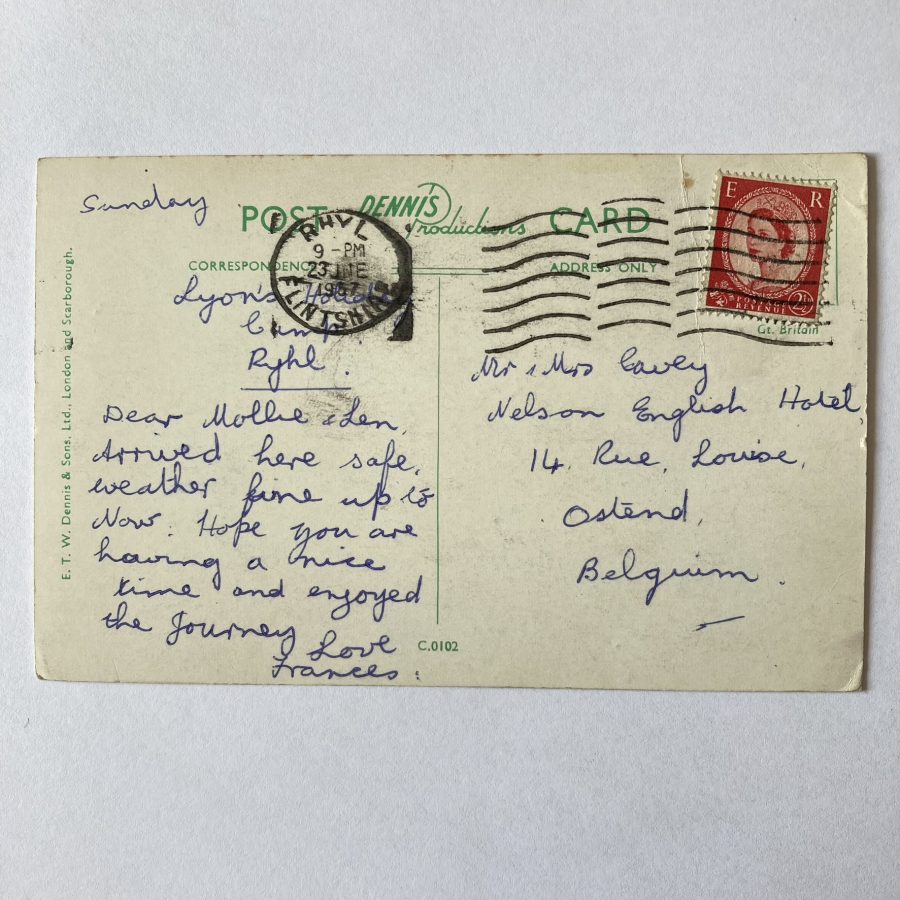 Sunday
POST DENNIS Productions CARD
RHYL
9 - PM
23 JNE
1957
FLINTSHIRE
E R
POSTAGE 2½
REVENUE
CORRESPONDENCE
ADDRESS ONLY
Gt. Britain
Lyon's Holiday
Camp
Ryhl.
Dear Mollie & Len,
Arrived here safe,
weather fine up to
Now. Hope you are
having a nice
time and enjoyed
the Journey Love
Frances.
Mr & Mrs Cavey
Nelson English Hotel,
14. Rue, Louise,
Ostend,
Belguim.
C.0102
E. T. W. Dennis & Sons, Ltd., London and Scarborough.